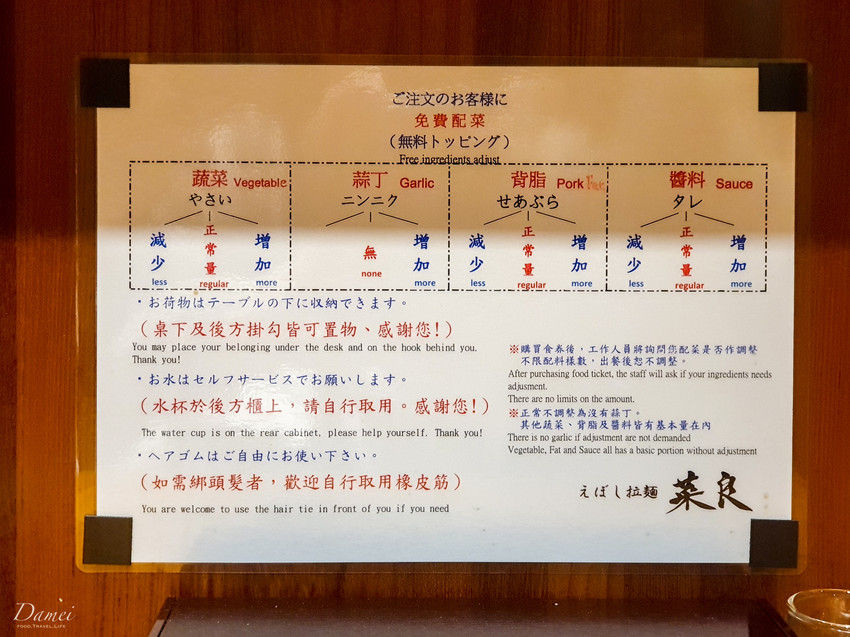 ご注文のお客様に
免費配菜
（無料トッピング）
Free ingredients adjust
蔬菜 Vegetable
やさい
減少 less
正常量 regular
增加 more
蒜丁 Garlic
ニンニク
無 none
增加 more
背脂 Pork
せあぶら
減少 less
正常量 regular
增加 more
醬料 Sauce
タレ
減少 less
正常量 regular
增加 more
・お荷物はテーブルの下に収納できます。
（桌下及後方掛勾皆可置物、感謝您!）
You may place your belonging under the desk and on the hook behind you.
Thank you!
・お水はセルフサービスでお願いします。
（水杯於後方櫃上，請自行取用。感謝您!）
The water cup is on the rear cabinet, please help yourself. Thank you!
・ヘアゴムはご自由にお使い下さい。
（如需綁頭髮者，歡迎自行取用橡皮筋）
You are welcome to use the hair tie in front of you if you need
※購買食券後，工作人員將詢問您配菜是否作調整
不限配料樣數，出餐後恕不調整。
After purchasing food ticket, the staff will ask if your ingredients needs
adjusment.
There are no limits on the amount.
※正常不調整為沒有蒜丁。
其他蔬菜、背脂及醬料皆有基本量在內
There is no garlic if adjustment are not demanded
Vegetable, Fat and Sauce all has a basic portion without adjustment
えぼし拉麵 菜良
Damei
FOOD.TRAVEL.LIFE